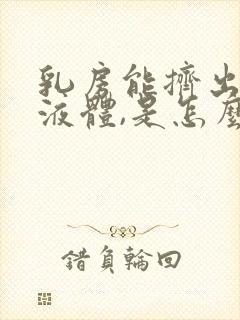 乳房能擠出
液體,是怎麼
錯負輪回